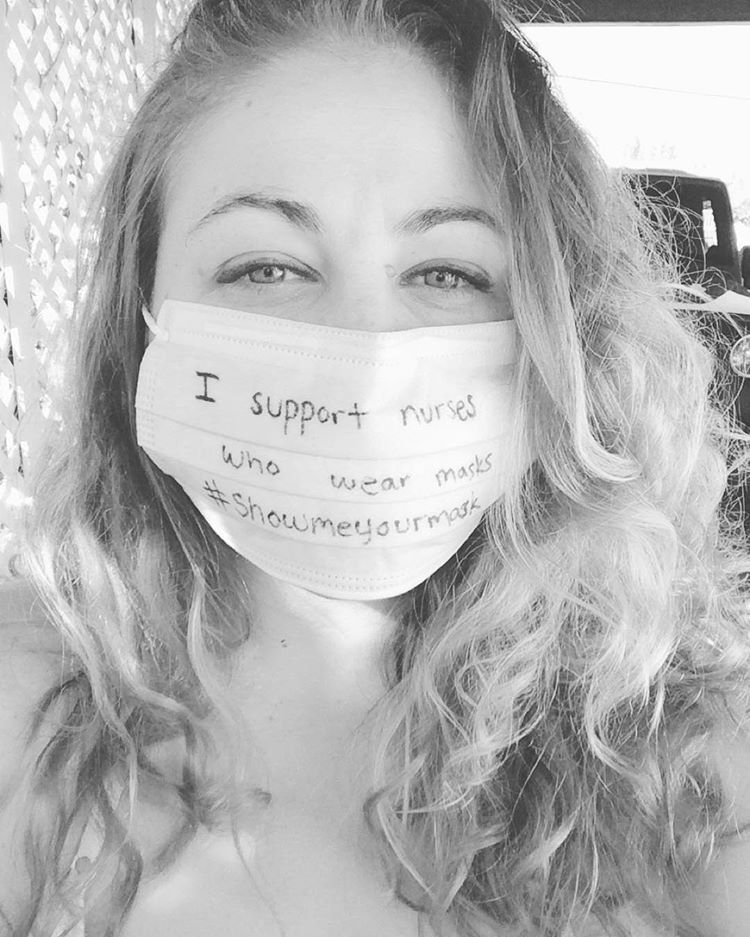 I support nurses
who wear masks
#Showmeyourmask